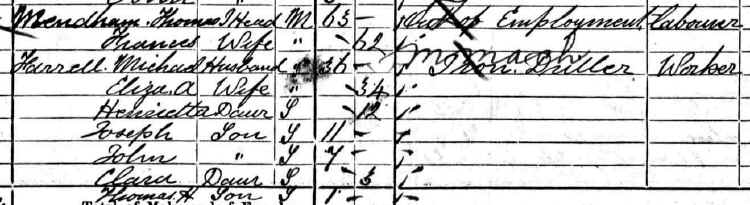 Mendham Thomas J Head M 63 - Out of Employment Labourer
Frances Wife " - 62
Farrell Michael Husband 36 - Iron Driller Worker
Eliza A Wife " - 34
Henrietta Daur S - 12
Joseph Son S 11 -
John " S 7 -
Clara Daur S - 3
Thomas H Son S 1 -